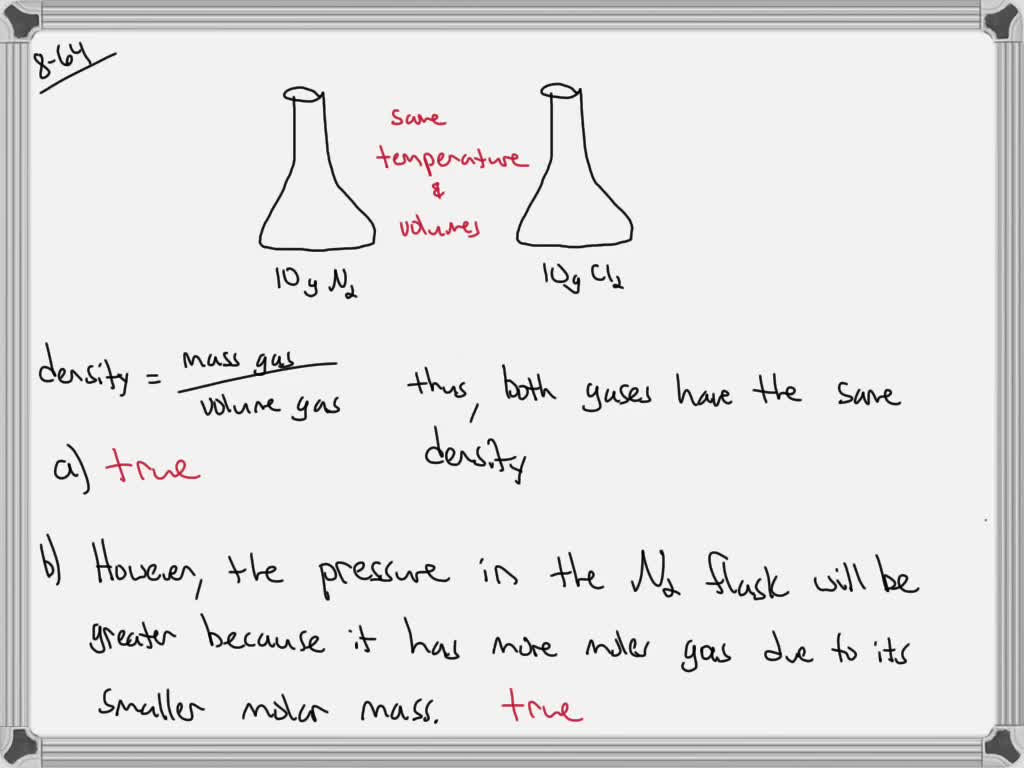 8-64
same
temperature
&
volumes
10g N₂
10g Cl₂
density = mass gas / volume gas
thus, both gases have the same
density
a) true
b) However, the pressure in the N₂ flask will be
greater because it has more moles gas due to its
smaller molar mass. true